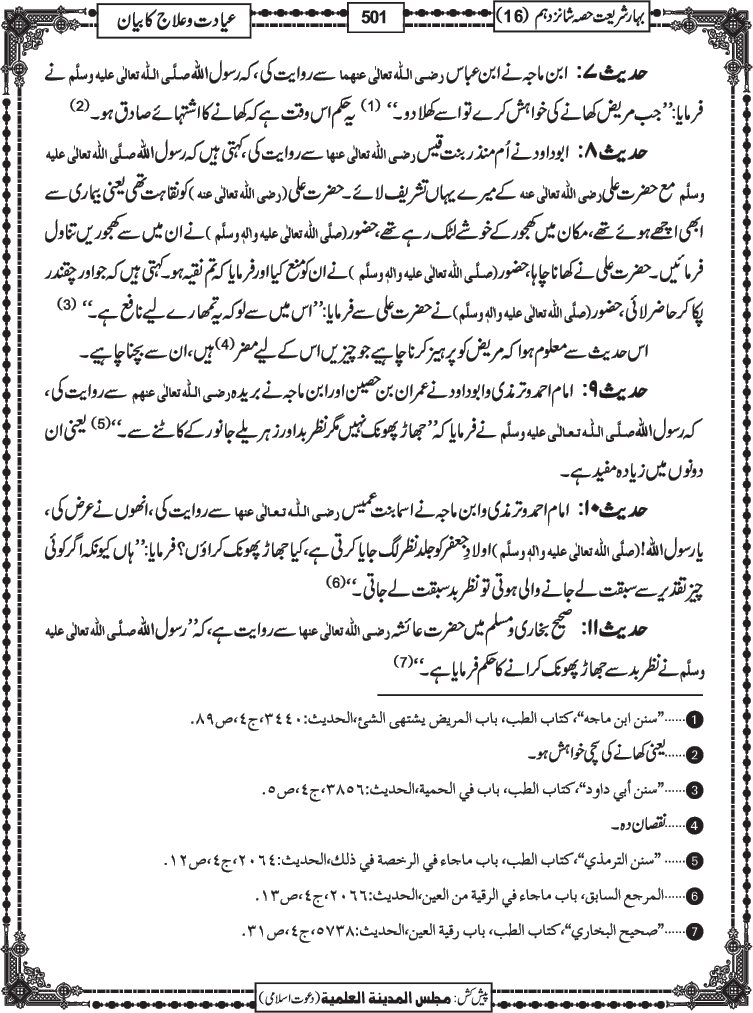 بہارِشریعت حصہ شانزدہم (16)
501
عیادت وعلاج کا بیان
حدیث ۷: ابن ماجہ نے ابن عباس رضی اللہ تعالٰی عنہما سے روایت کی، کہ رسول اللہ صلَّی اللہ تعالٰی علیہ وسلَّم نے
فرمایا: ’’جب مریض کھانے کی خواہش کرے تو اسے کھلادو۔‘‘ (1) یہ حکم اس وقت ہے کہ کھانے کا اشتہائے صادق ہو۔(2)
حدیث ۸: ابوداود نے اُم منذر بنت قیس رضی اللہ تعالٰی عنہا سے روایت کی، کہتی ہیں کہ رسول اللہ صلَّی اللہ تعالٰی علیہ
وسلَّم مع حضرت علی رضی اللہ تعالٰی عنہ کے میرے یہاں تشریف لائے۔ حضرت علی (رضی اللہ تعالٰی عنہ) کو نقاہت تھی یعنی بیماری سے
ابھی اچھے ہوئے تھے، مکان میں کھجور کے خوشے لٹک رہے تھے، حضور (صلَّی اللہ تعالٰی علیہ والہٖ وسلَّم) نے ان میں سے کھجوریں تناول
فرمائیں۔ حضرت علی نے کھانا چاہا، حضور (صلَّی اللہ تعالٰی علیہ والہٖ وسلَّم) نے ان کو منع کیا اور فرمایا کہ تم نقیہ ہو۔ کہتی ہیں کہ جو اور چقندر
پکا کر حاضر لائی، حضور (صلَّی اللہ تعالٰی علیہ والہٖ وسلَّم) نے حضرت علی سے فرمایا: ’’اس میں سے لو کہ یہ تمھارے لیے نافع ہے۔‘‘ (3)
اس حدیث سے معلوم ہوا کہ مریض کو پرہیز کرنا چاہیے جو چیزیں اس کے لیے مضر(4) ہیں، ان سے بچنا چاہیے۔
حدیث ۹: امام احمد و ترمذی و ابوداود نے عمران بن حصین اور ابن ماجہ نے بریدہ رضی اللہ تعالٰی عنہم سے روایت کی،
کہ رسول اللہ صلَّی اللہ تعالٰی علیہ وسلَّم نے فرمایا کہ ’’جھاڑ پھونک نہیں مگر نظر بد اور زہریلے جانور کے کاٹنے سے۔‘‘(5) یعنی ان
دونوں میں زیادہ مفید ہے۔
حدیث ۱۰: امام احمد و ترمذی و ابن ماجہ نے اسما بنت عمیس رضی اللہ تعالٰی عنہا سے روایت کی، انھوں نے عرض کی،
یارسول اللہ! (صلَّی اللہ تعالٰی علیہ والہٖ وسلَّم) اولادِ جعفر کو جلد نظر لگ جایا کرتی ہے، کیا جھاڑ پھونک کراؤں؟ فرمایا: ’’ہاں کیونکہ اگر کوئی
چیز تقدیر سے سبقت لے جانے والی ہوتی تو نظر بد سبقت لے جاتی۔‘‘(6)
حدیث ۱۱: صحیح بخاری و مسلم میں حضرت عائشہ رضی اللہ تعالٰی عنہا سے روایت ہے، کہ ’’رسول اللہ صلَّی اللہ تعالٰی علیہ
وسلَّم نے نظر بد سے جھاڑ پھونک کرانے کا حکم فرمایا ہے۔‘‘(7)
1......”سنن ابن ماجه“، کتاب الطب، باب المریض یشتهی الشئ، الحدیث: ۳۴۴۰، ج۴، ص۸۹.
2......یعنی کھانے کی سچی خواہش ہو۔
3......”سنن أبي داود“، کتاب الطب، باب في الحمیة، الحدیث: ۳۸۵۶، ج۴، ص۵.
4......نقصان دہ۔
5......”سنن الترمذي“، کتاب الطب، باب ماجاء في الرخصة في ذلك، الحدیث: ۲۰۶۴، ج۴، ص۱۲.
6......المرجع السابق، باب ماجاء في الرقیة من العین، الحدیث: ۲۰۶۶، ج۴، ص۱۳.
7......”صحیح البخاري“، کتاب الطب، باب رقیة العین، الحدیث: ۵۷۳۸، ج۴، ص۳۱.
پیش کش: مجلس المدینة العلمیة (دعوتِ اسلامی)